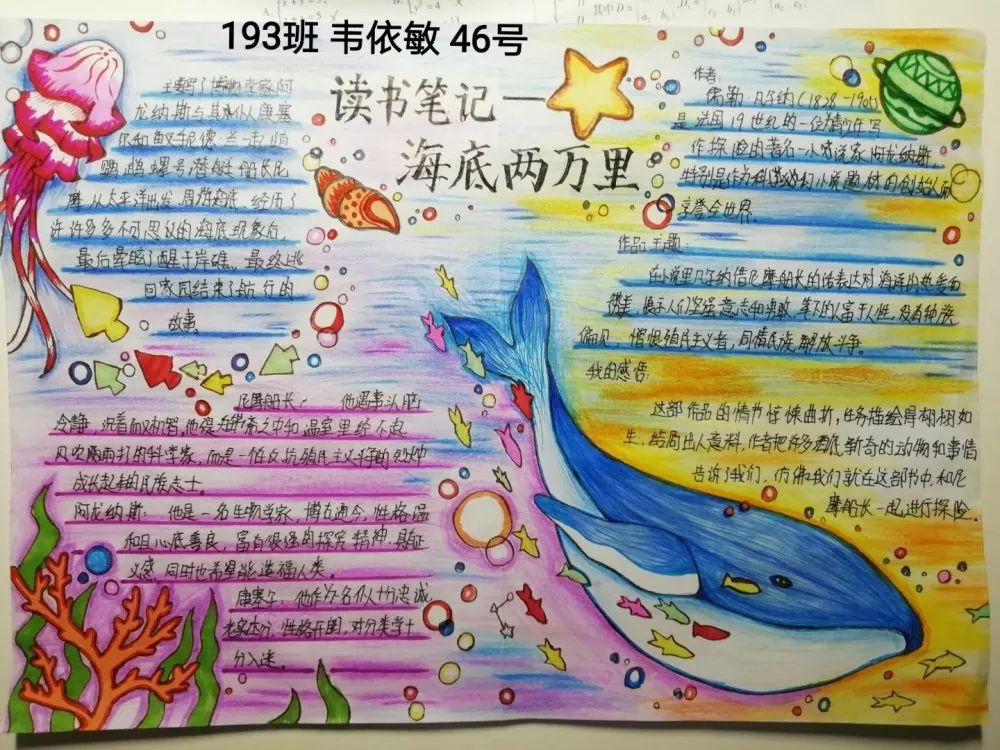 193班 韦依敏 46号
读书笔记一
海底两万里
主要写了博物学家阿
龙纳斯与其仆人康塞
尔和鱼叉手尼德·兰一起
鹦鹉螺号潜艇船长尼
摩从太平洋出发周游海底,经历了
许许多多不可思议的海底现象后,
最后晕眩了醒于岸礁。最终逃
回家园结束了航行的
故事。
尼摩船长: 他遇事头脑
冷静,沉着而又机智,他
温室里经不起
风吹雨打的科学家,而是一位在反抗殖民主义斗争的烈火中
成长起来的民族志士。
阿龙纳斯: 他是一名生物学家,博古通今,性格温
和且心底善良,富有很强的探究精神,具有正
义感,同时也希望能造福人类。
康塞尔: 他作为名仆十分忠诚,
性格开朗,对分类学十
分入迷。
作者:
儒勒·凡尔纳(1828-1905)
是法国19世纪的一位青少年写
作探险的著名小说家,阿龙纳斯,
特别是作为科学幻想小说题材的创始人而
享誉全世界。
作品主题:
在小说里凡尔纳借尼摩船长的话表达对海洋的热爱和
赞美,展示人们坚强意志和勇敢,笔下的人富于人性,没有种族
偏见,憎恨殖民主义者,同情民族解放斗争。
我的感悟:
这部作品的情节惊悚曲折,任务描绘得栩栩如
生,结局出人意料,作者把许多海底新奇的动物和事情
告诉了我们,仿佛我们就在这部书中,和尼
摩船长一起进行探险。